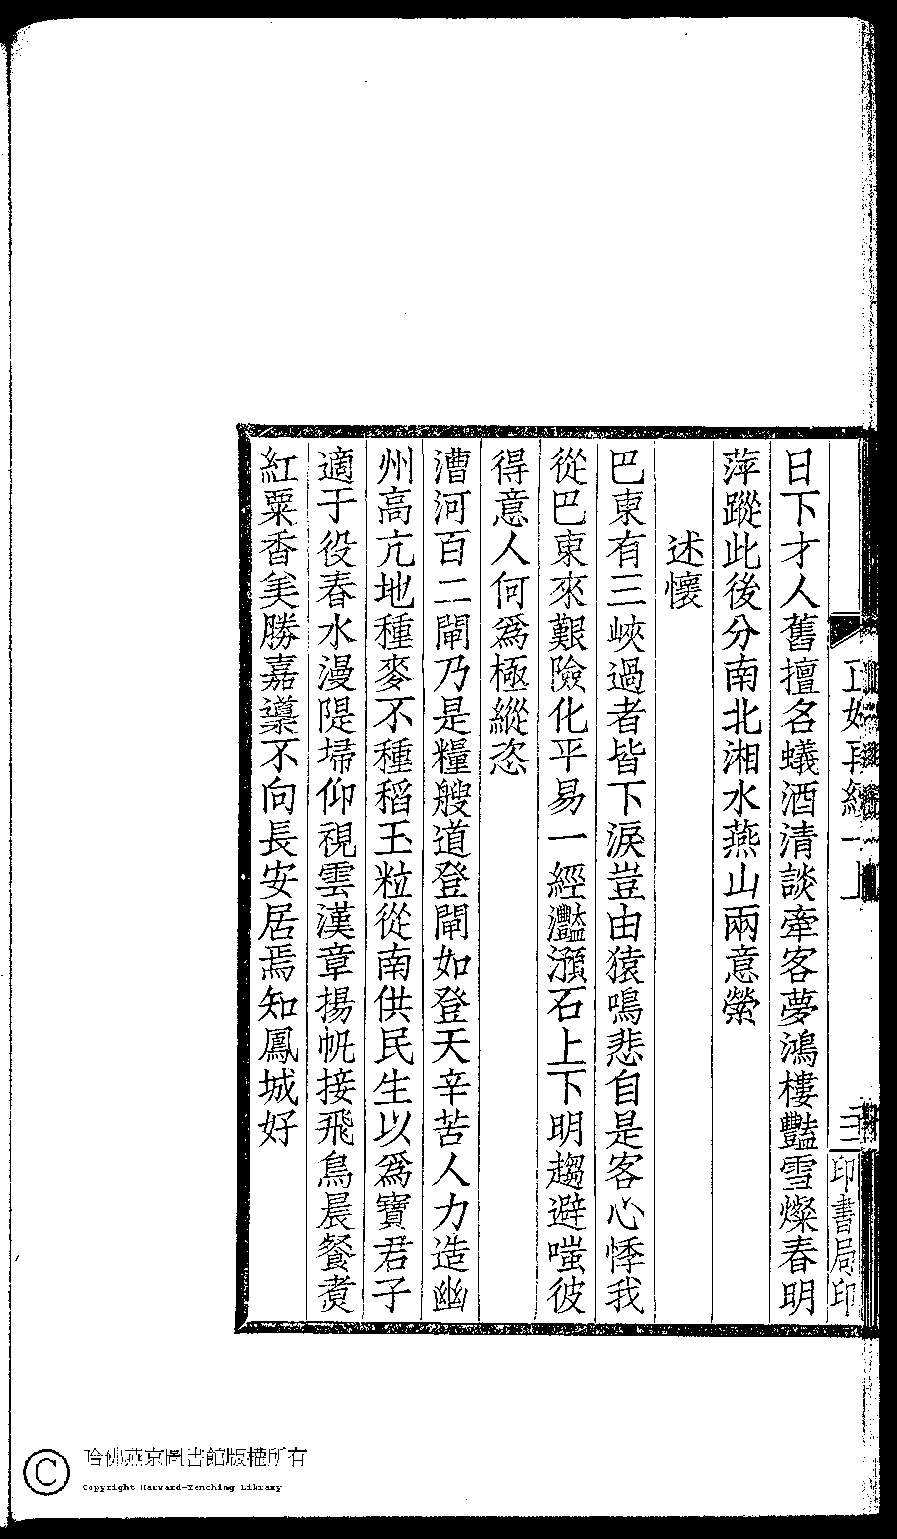 日下才人舊擅名蟻酒清談牽客夢鴻樓豔雪燦春明
萍蹤此後分南北湘水燕山兩意縈
述懷
巴東有三峽過者皆下淚豈由猿鳴悲自是客心悸我
從巴東來艱險化平易一經灩澦石上下明趨避嗤彼
得意人何爲極縱恣
漕河百二閘乃是糧艘道登閘如登天辛苦人力造幽
州高亢地種麥不種稻玉粒從南供民生以爲寶君子
適于役春水漫隄埽仰視雲漢章揚帆接飛鳥晨餐煑
紅粟香美勝嘉䆃不向長安居焉知鳳城好
印書局印
哈佛燕京圖書館版權所有
Copyright Harvard-Yenching Library